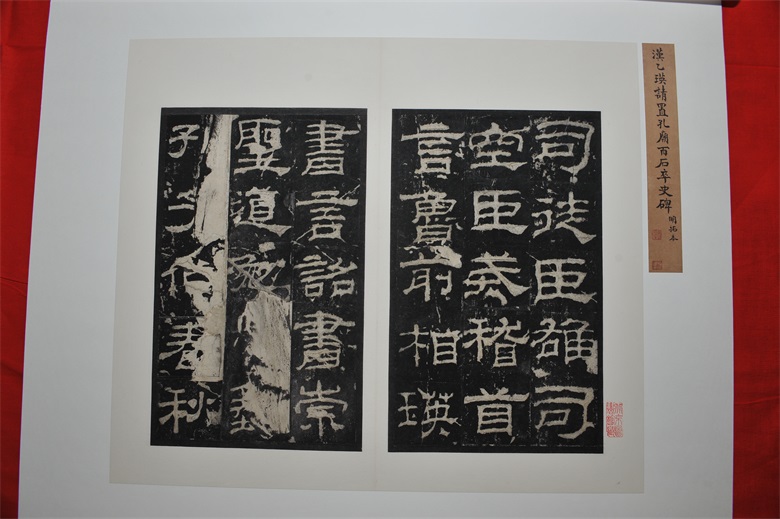 漢乙瑛請置孔廟百石卒史碑
明拓本
司徒臣雄司
空臣戒稽首
言魯前相瑛
書言詔書崇
聖道勉藝
孔子作春秋